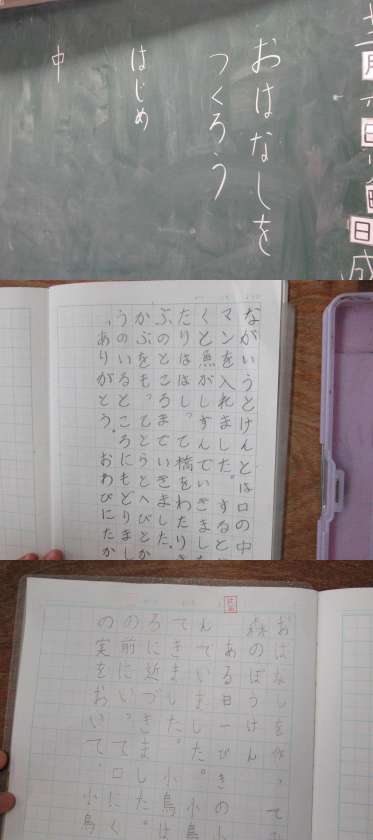 おはなしを
つくろう
はじめ
中
ながいうとけんとは口の中
マンを入れました。すると
くと魚がしずんでいきました
たりははしって橋をわたり
ぶのところまでいきました。
かぶをもってとらとへびとか
うのいるところにもどりまし
「ありがとう。おわびにたか
おはなしを作って
森のぼうけん
ある日一ぴきの小
んでいました。小鳥
てきました。小鳥は
ろに近づきました。
の前にいって口にく
の実をおいて、小鳥